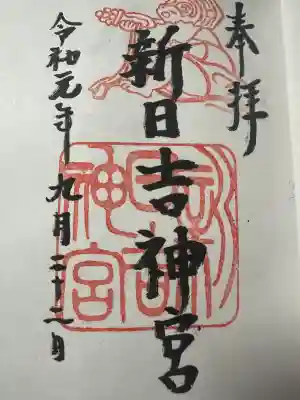 奉拝
新日吉神宮
令和元年九月二十二日
新日吉
神宮